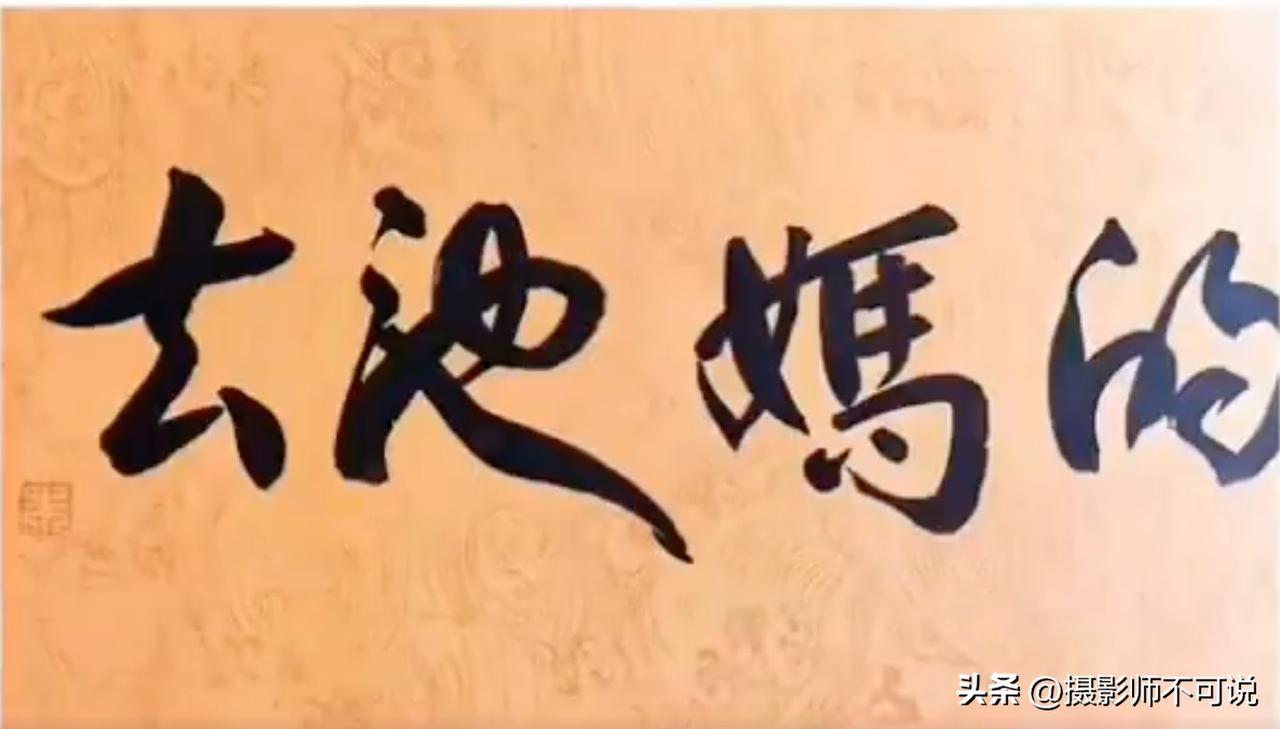 去他媽的
头条 @摄影师不可说